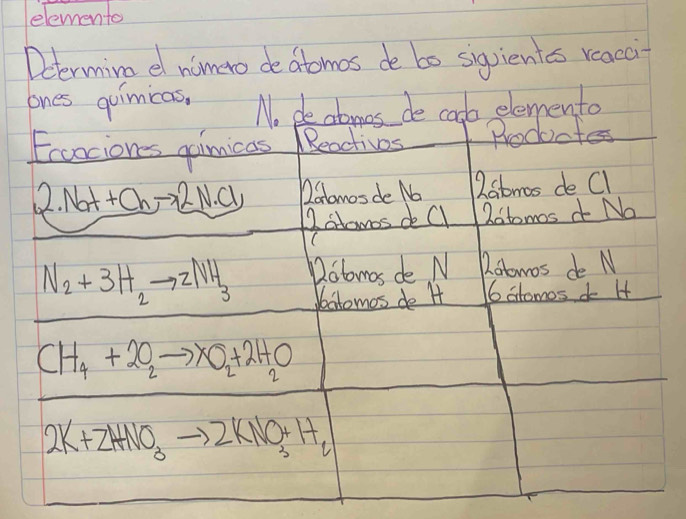 elemento
Determina el número de átomos de los siguientes reacci-
ones químicas.
No. de atomos de cada elemento
Ecuaciones químicas Reactivos Productos
2.Nat + Ch → 2 N.Cl 2átomos de Na 2átomos de Cl
2 átomos de Cl 2átomos d Na
N₂ + 3H₂ → 2NH₃ 2átomos de N 2átomos de N
6átomos de H 6 átomos d H
CH₄ + 2O₂ → XO₂ + 2H₂O
2K + 2HNO₃ → 2KNO₃ + H₂